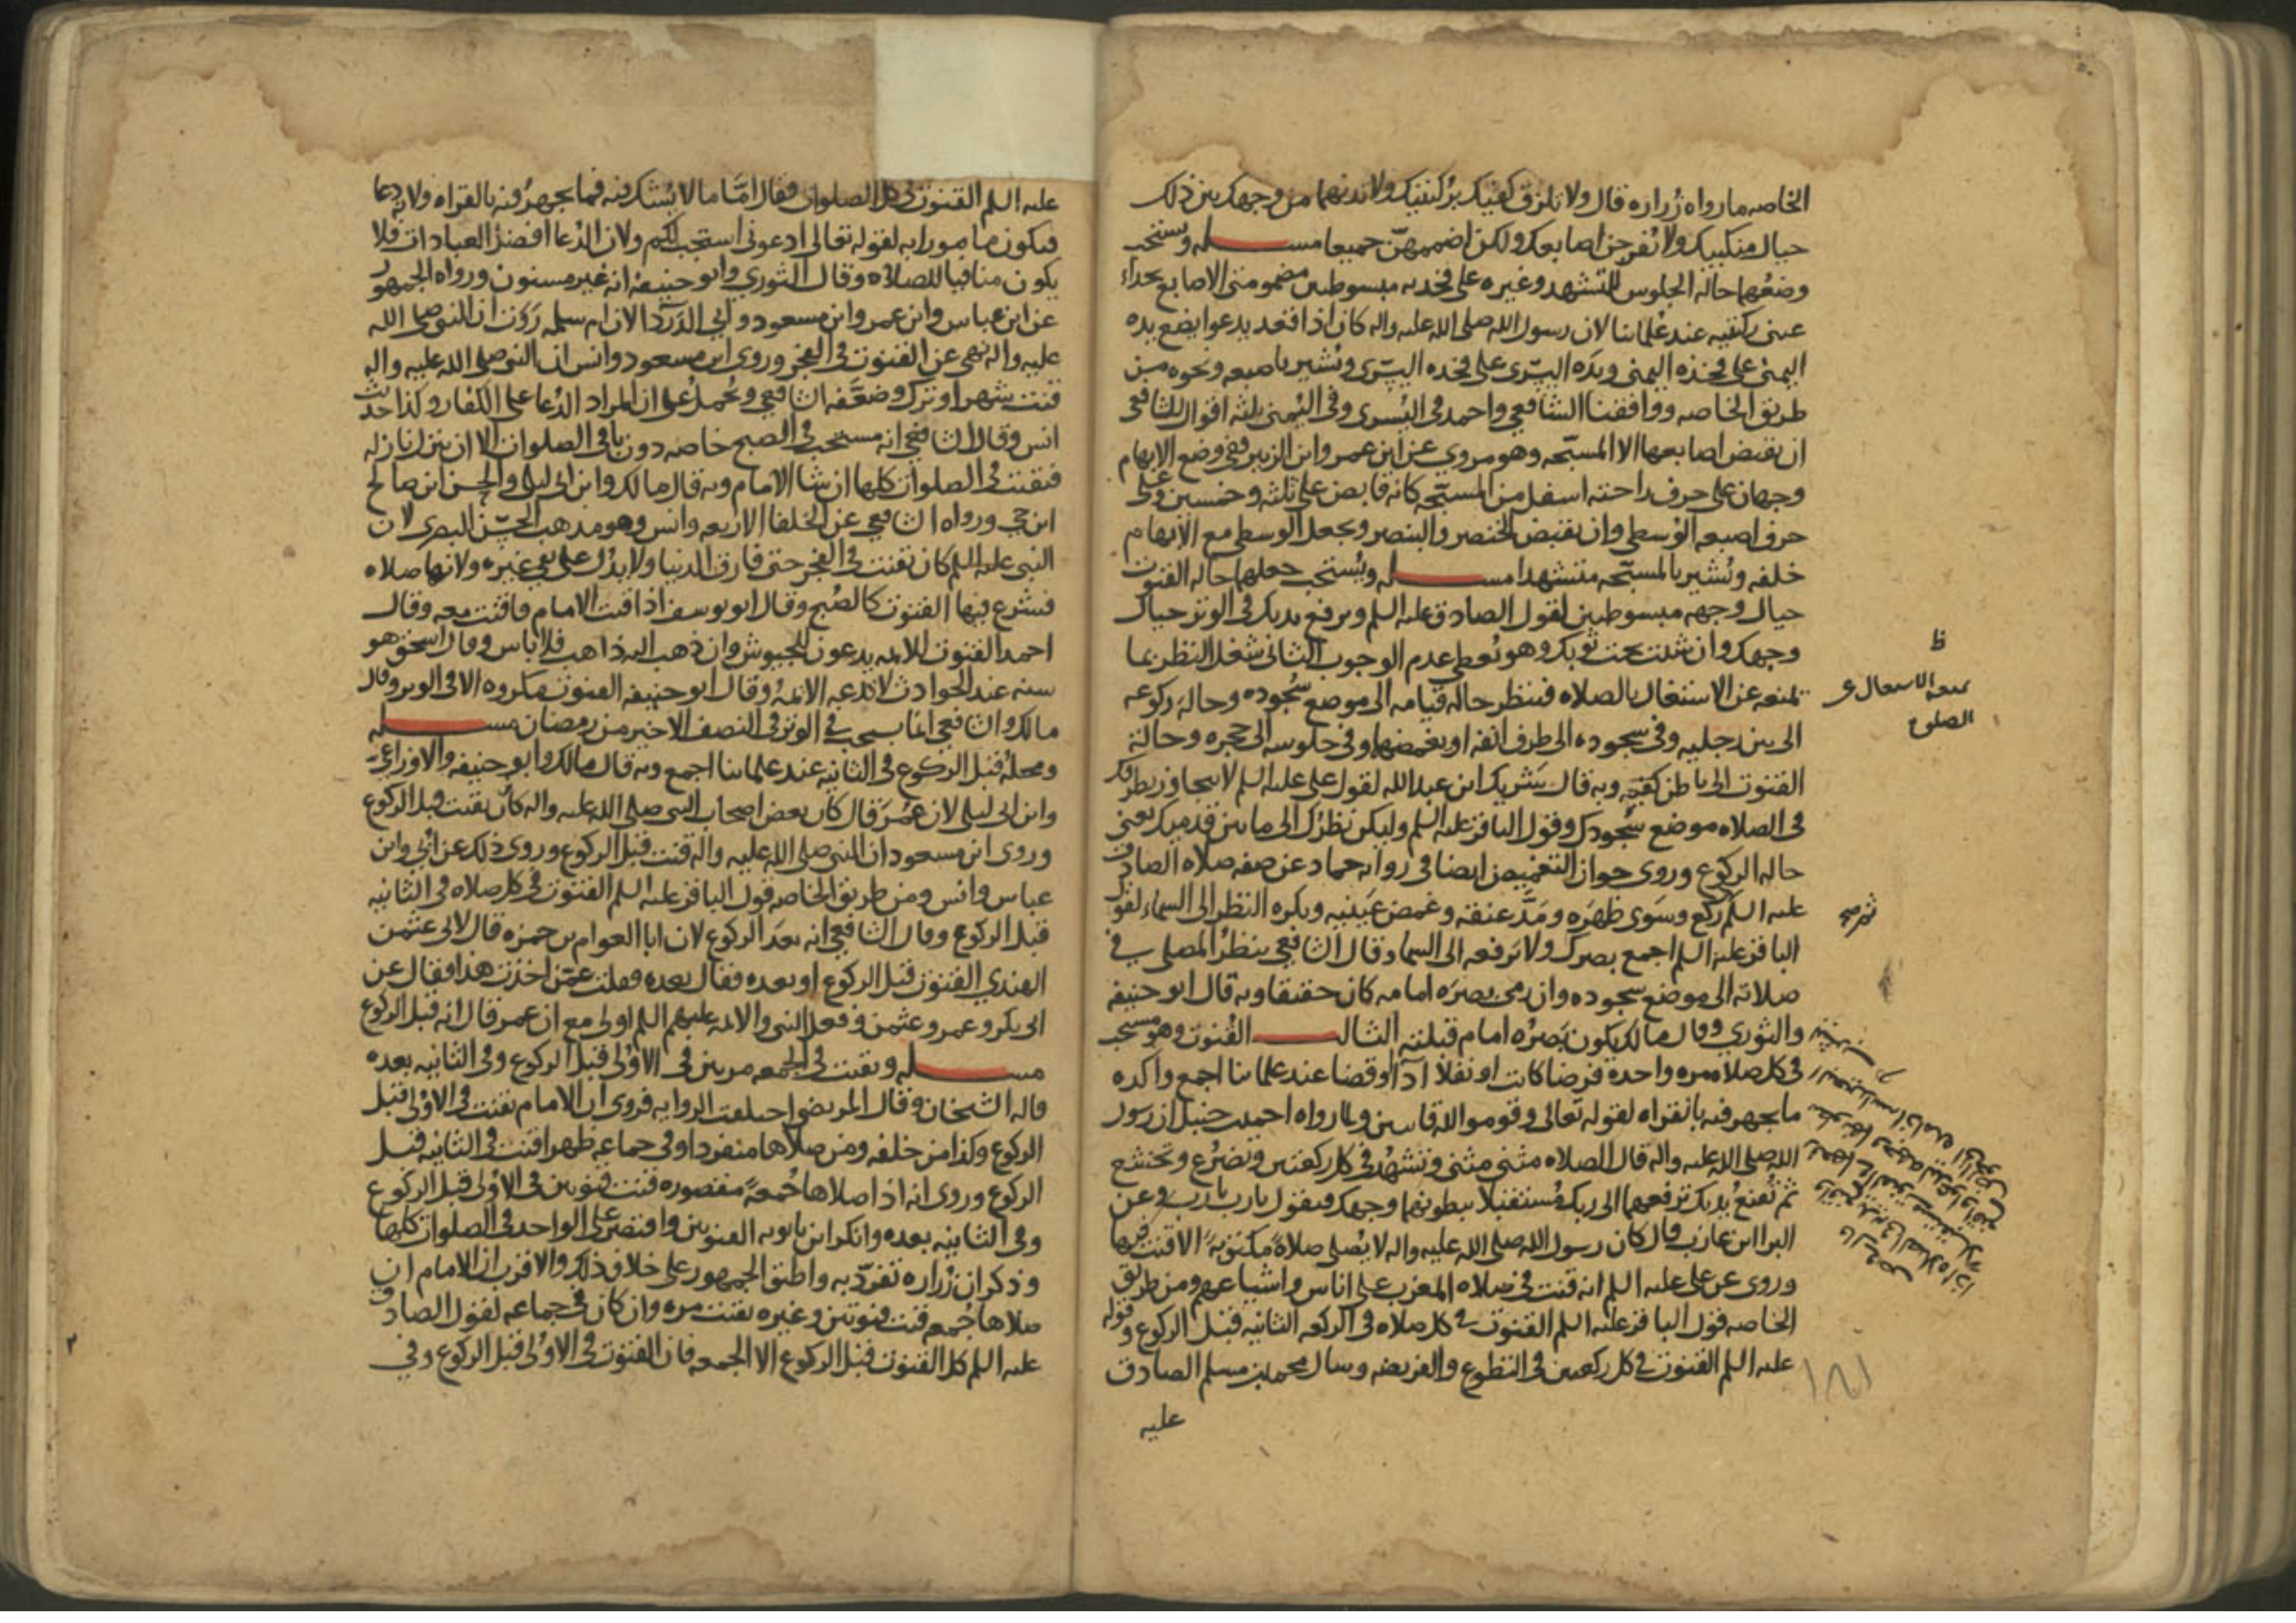 الخاصه ما رواه زراره قال ولا تلزق كفيك بركبتيك ولا تدنهما من وجهك بين ذلك
حيال منكبيك ولا تفرجن اصابعك ولكن اضممهن جميعا مسـله ويستحب
وضعهما حاله الجلوس للتشهد وغيره على فخديه مبسوطين مضمومتى الاصابع بحذاء
عينى ركبتيه عند علمائنا لان رسول الله صلى الله عليه واله كان اذا قعد يدعوا يضع يده
اليمنى على فخذه اليمنى ويده اليسرى على فخده اليسرى ويشير باصبعه ونحوه من
طريق الخاصه ووافقنا الشافعي واحمد فى اليسرى وفى اليمنى ثلثه اقوال للشافعى
ان يقبض اصابعها الا المسبحه وهو مروي عن ابن عمر وابن الزبير وفى وضع الابهام
وجهان على حرف راحته اسفل من المسبحه كانه قابض على ثلثه وخمسين وعلى
حرف اصبعه الوسطى وان يقبض الخنصر والبنصر ويجعل الوسطى مع الابهام
خلفه ويشير بالمسبحه متشهدا مسـله ويستحب جعلهما حاله القنوت
حيال وجهه مبسوطين لقول الصادق عليه السلم وترفع يديك فى الوتر حيال
وجهك وان شئت تحت ثوبك وهو يعطى عدم الوجوب الثانى شغل النظر بما
يمنعه عن الاشتغال بالصلاه فينظر حاله قيامه الى موضع سجوده وحاله ركوعه
الى بين رجليه وفى سجوده الى طرف انفه او يغمضهما وفى جلوسه الى حجره وحالة
القنوت الى باطن كفيه وبه قال شريك ابن عبد الله لقول على عليه السلم لا يتجاوز بطرفك
فى الصلاه موضع سجودك وقول الباقر عليه السلم وليكن نظرك الى ما بين قدميك يعنى
حاله الركوع وروى جواز التغميض ايضا فى روايه حماد عن صفه صلاه الصادق
عليه السلم ركع وسوى ظهره ومد عنقه وغمض عينيه ويكره النظر الى السماء لقول
الباقر عليه السلم اجمع بصرك ولا ترفعه الى السماء وقال الشافعي ينظر المصلى في
صلاته الى موضع سجوده وان رمى بصره امامه كان خفيفا وبه قال ابو حنيفه
والثوري وقال مالك يكون بصره امام قبلته الثالـث القنوت وهو مستحب
فى كل صلاه مره واحده فرضا كانت او نفلا اداءً او قضا عند علمائنا اجمع واكده
ما يجهر فيه بالقراه لقوله تعالى وقوموا لله قانتين ولما رواه احمد بن حنبل ان رسول
الله صلى الله عليه واله قال الصلاه مثنى مثنى وتشهد فى كل ركعتين وتضرع وتخشع
ثم تقنع يديك ترفعهما الى ربك مستقبلا ببطونهما وجهك فيقول يا رب يا رب وعن
البرا ابن عازب قال كان رسول الله صلى الله عليه واله لا يصلى صلاة مكتوبة الا قنت فيها
وروى عن على عليه السلم انه قنت فى صلاه المغرب على اناس واشياعهم ومن طريق
الخاصه قول الباقر عليه السلم القنوت في كل صلاه فى الركعه الثانيه قبل الركوع وقوله
عليه السلم القنوت في كل ركعتين فى التطوع والفريضه وسال محمد بن مسلم الصادق
عليه
ظ
يمنعه الاشتغال عن
الصلوة
ثم صح
عليه السلم القنوت في كل الصلوات فقال اما ما لا يشك فيه فما يجهر فيه بالقراه ولانه دعا
فيكون مامورا به لقوله تعالى ادعونى استجب لكم ولان الدعا افضل العبادات فلا
يكون منافيا للصلاه وقال الثوري وابو حنيفه انه غير مسنون ورواه الجمهور
عن ابن عباس وابن عمر وابن مسعود وابي الدرداء لان ام سلمه روت ان النبى صلى الله
عليه واله نهى عن القنوت فى الفجر وروى ابن مسعود وانس ان النبى صلى الله عليه واله
قنت شهرا وترك وضعفه الشافعى ويحمل على ان المراد الدعا على الكفار وكذا حديث
انس وقال الشافعى انه مستحب فى الصبح خاصه دون باقى الصلوات الا ان ينزل نازله
فيقنت فى الصلوات كلها ان شا الامام وبه قال مالك وابن ابى ليلى والحسن ابن صالح
ابن حي ورواه الشافعى عن الخلفا الاربعه وانس وهو مذهب الحسن البصرى لان
النبى عليه السلم كان يقنت فى الفجر حتى فارق الدنيا ولا يدل على نفى غيره ولانها صلاه
فشرع فيها القنوت كالصبح وقال ابو يوسف اذا قنت الامام فاقنت معه وقال
احمد القنوت للائمه يدعون للجيوش وان ذهب اليه ذاهب فلا باس وقال اسحق هو
سنه عند الحوادث لا تدعه الائمه وقال ابو حنيفه القنوت مكروه الا فى الوتر وقال
مالك والشافعى انما يستحب في الوتر فى النصف الاخير من رمضان مسـله
ومحله قبل الركوع فى الثانيه عند علمائنا اجمع وبه قال مالك وابو حنيفه والاوزاعى
وابن ابى ليلى لان عمر قال كان بعض اصحاب النبى صلى الله عليه واله كان يقنت قبل الركوع
وروى ابن مسعود ان النبى صلى الله عليه واله قنت قبل الركوع وروى ذلك عن ابي وابن
عباس وانس ومن طريق الخاصه قول الباقر عليه السلم القنوت فى كل صلاه فى الثانيه
قبل الركوع وقال الشافعى انه بعد الركوع لان ابا العوام بن حمزه قال لابى عثمن
الهندي القنوت قبل الركوع او بعده فقال بعده فقلت عمن اخذت هذا فقال عن
ابى بكر وعمر وعثمن وفعل النبى والائمه عليهم السلم اولى مع ان عمر قال انه قبل الركوع
مسـله ويقنت فى الجمعه مرتين فى الاولى قبل الركوع وفى الثانيه بعده
قاله الشيخان وقال المرتضى اختلفت الروايه فروى ان الامام يقنت فى الاولى قبل
الركوع وكذا من خلفه ومن صلاها منفردا وفى جماعه ظهرا قنت فى الثانيه قبل
الركوع وروى انه اذا صلاها جمعة مقصوره قنت قنوتين فى الاولى قبل الركوع
وفى الثانيه بعده وانكر ابن بابويه القنوتين واقتصر على الواحد فى الصلوات كلها
وذكر ان زراره تفرد به واطبق الجمهور على خلاف ذلك والاقرب ان الامام ان
صلاها جمعه قنت قنوتين وغيره يقنت مره وان كان في جماعه لقول الصادق
عليه السلم كل القنوت قبل الركوع الا الجمعه فان القنوت فى الاولى قبل الركوع وفي